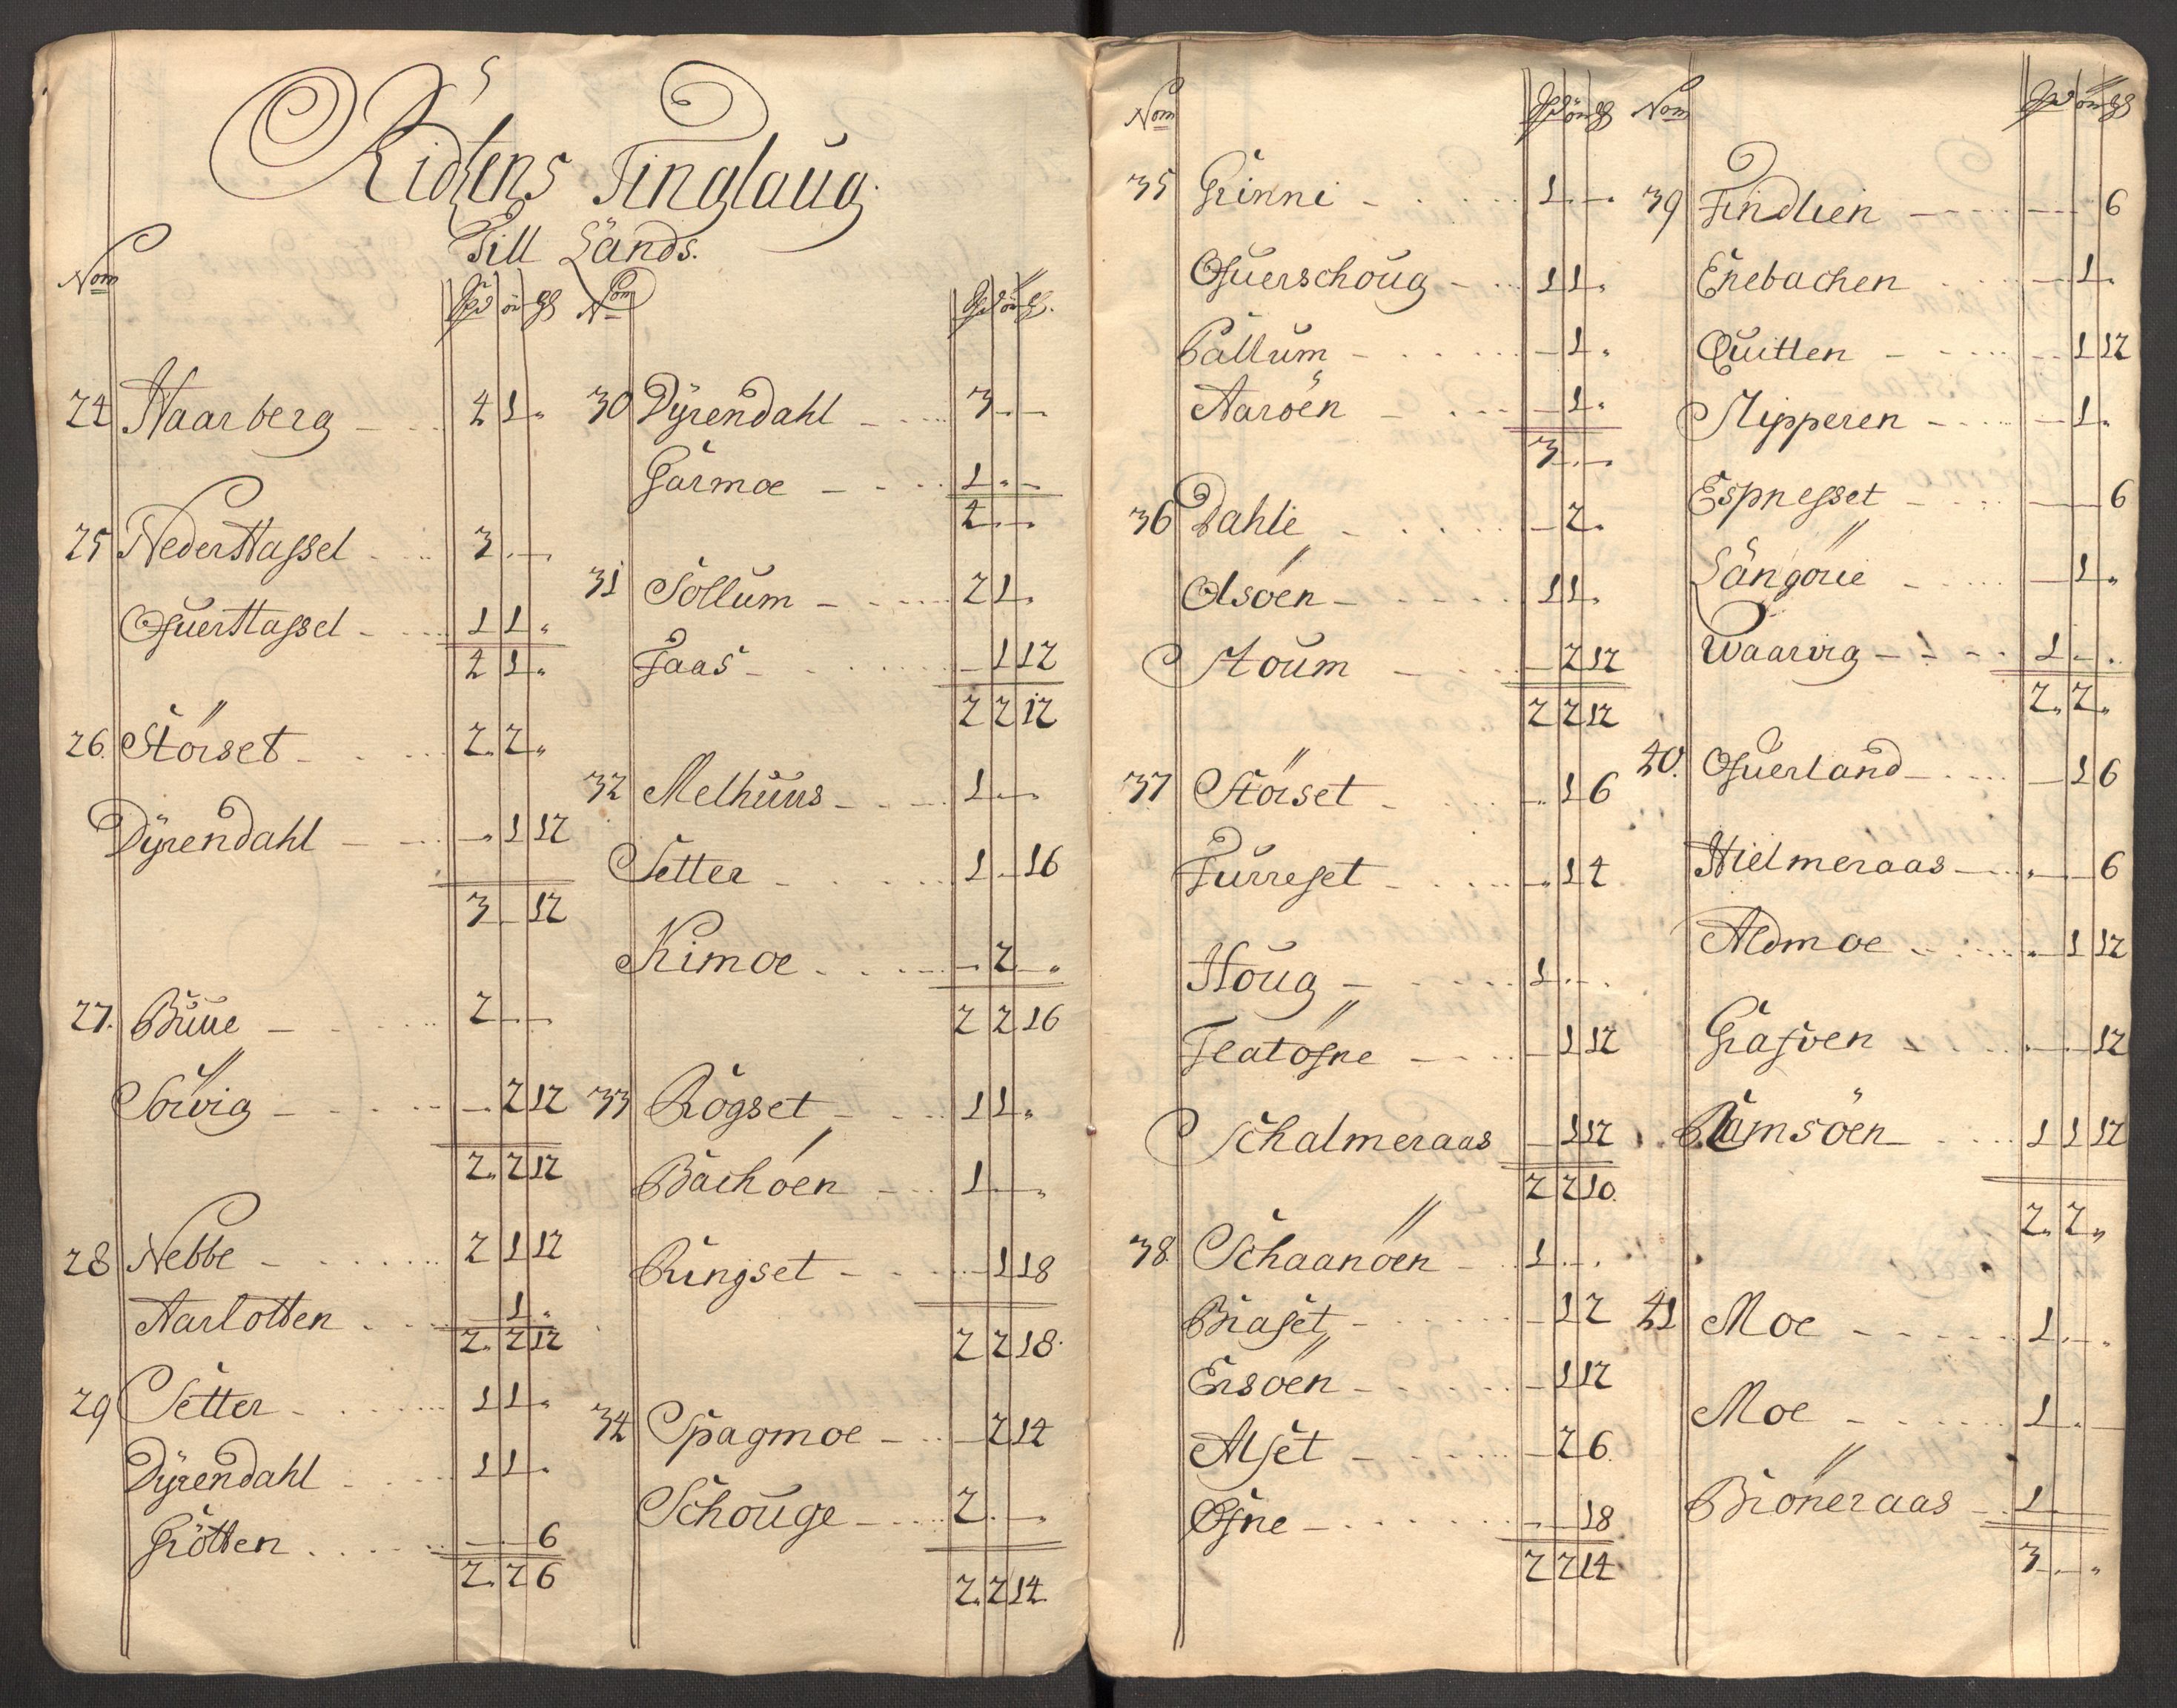 Ridsens Tinglaug.
Till Lands.
Nom Spd ör
24 Haarberg - 4 1 "
25 Neder Hassel 3 . —
Ofuer Hassel - 1 1 "
4 1 "
26. Störset - 2. 2 "
Dÿrendahl — — " 1 12
3 — 12
27. Buue — 2 — —
Sörvig — — 2 12
2. 2 12
28 Nebbe — 2 1 12
Aarlotten — 1 "
2. 2 12
29 Setter 1 1 "
Dÿrendahl 1 1 "
Grötten — — 6
2. 2 6
Nom Spd ör
30 Dÿrendahl 3 — —
Garmoe — 1 " —
4 — —
31 Sollum — 2 1 "
Faas — 1 12
2 2 12
32 Melhuus 1 — —
Setter 1 — 16
Kimoe — 2 — "
2 2 16
33 Rogset 1 1 "
Bachöen 1 — "
Ringset — 1 18
2 2 18
34 Spagmoe — 2 14
Schouge 2 — —
2. 2 14
Nom Spd ör
35 Grinni — 1 — —
Ofuerschoug 1 1 "
Pallum — 1 "
Aaroen — 1 "
3 — —
36 Dahle — 2 "
Olsöen — 1 1 "
Stoum — 2 12
2 2 12
37 Störset — 1 6
Furreset — 1 4
Houg — 1 — —
Featöfne — 1 12
Schalmeraas — 1 12
2 2 10
38 Schaanöen 1 — —
Braset — 1 2
Ersöen — 1 12
Alset — 2 6
Ofne — — 18
2 2 14
Nom Spd ör
39 Findlien — — 6
Enebachen — 1 "
Quitten — 1 12
Slipperen — 1 "
Espnesset — — 6
Langörie — 1 "
Waarvig 1 — "
2. 2 "
40. Ofuerland — 1 6
Hielmeraas " — 6
Aldmoe " 1 12
Grafven — — 12
Ramsöen 1 1 12
2. 2 "
41 Moe 1 — "
Moe 1 " —
Bröneraas 1
3 — "